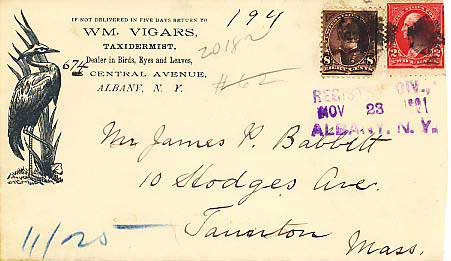 IF NOT DELIVERED IN FIVE DAYS RETURN TO
WM. VIGARS,
TAXIDERMIST.
Dealer in Birds, Eyes and Leaves,
674 CENTRAL AVENUE,
ALBANY, N. Y.
194
20182
#62
8
2 2
NOV 23
ALBANY, N. Y.
Mr James P. Babbitt
10 Hodges Ave.
Taunton
Mass.
11/25